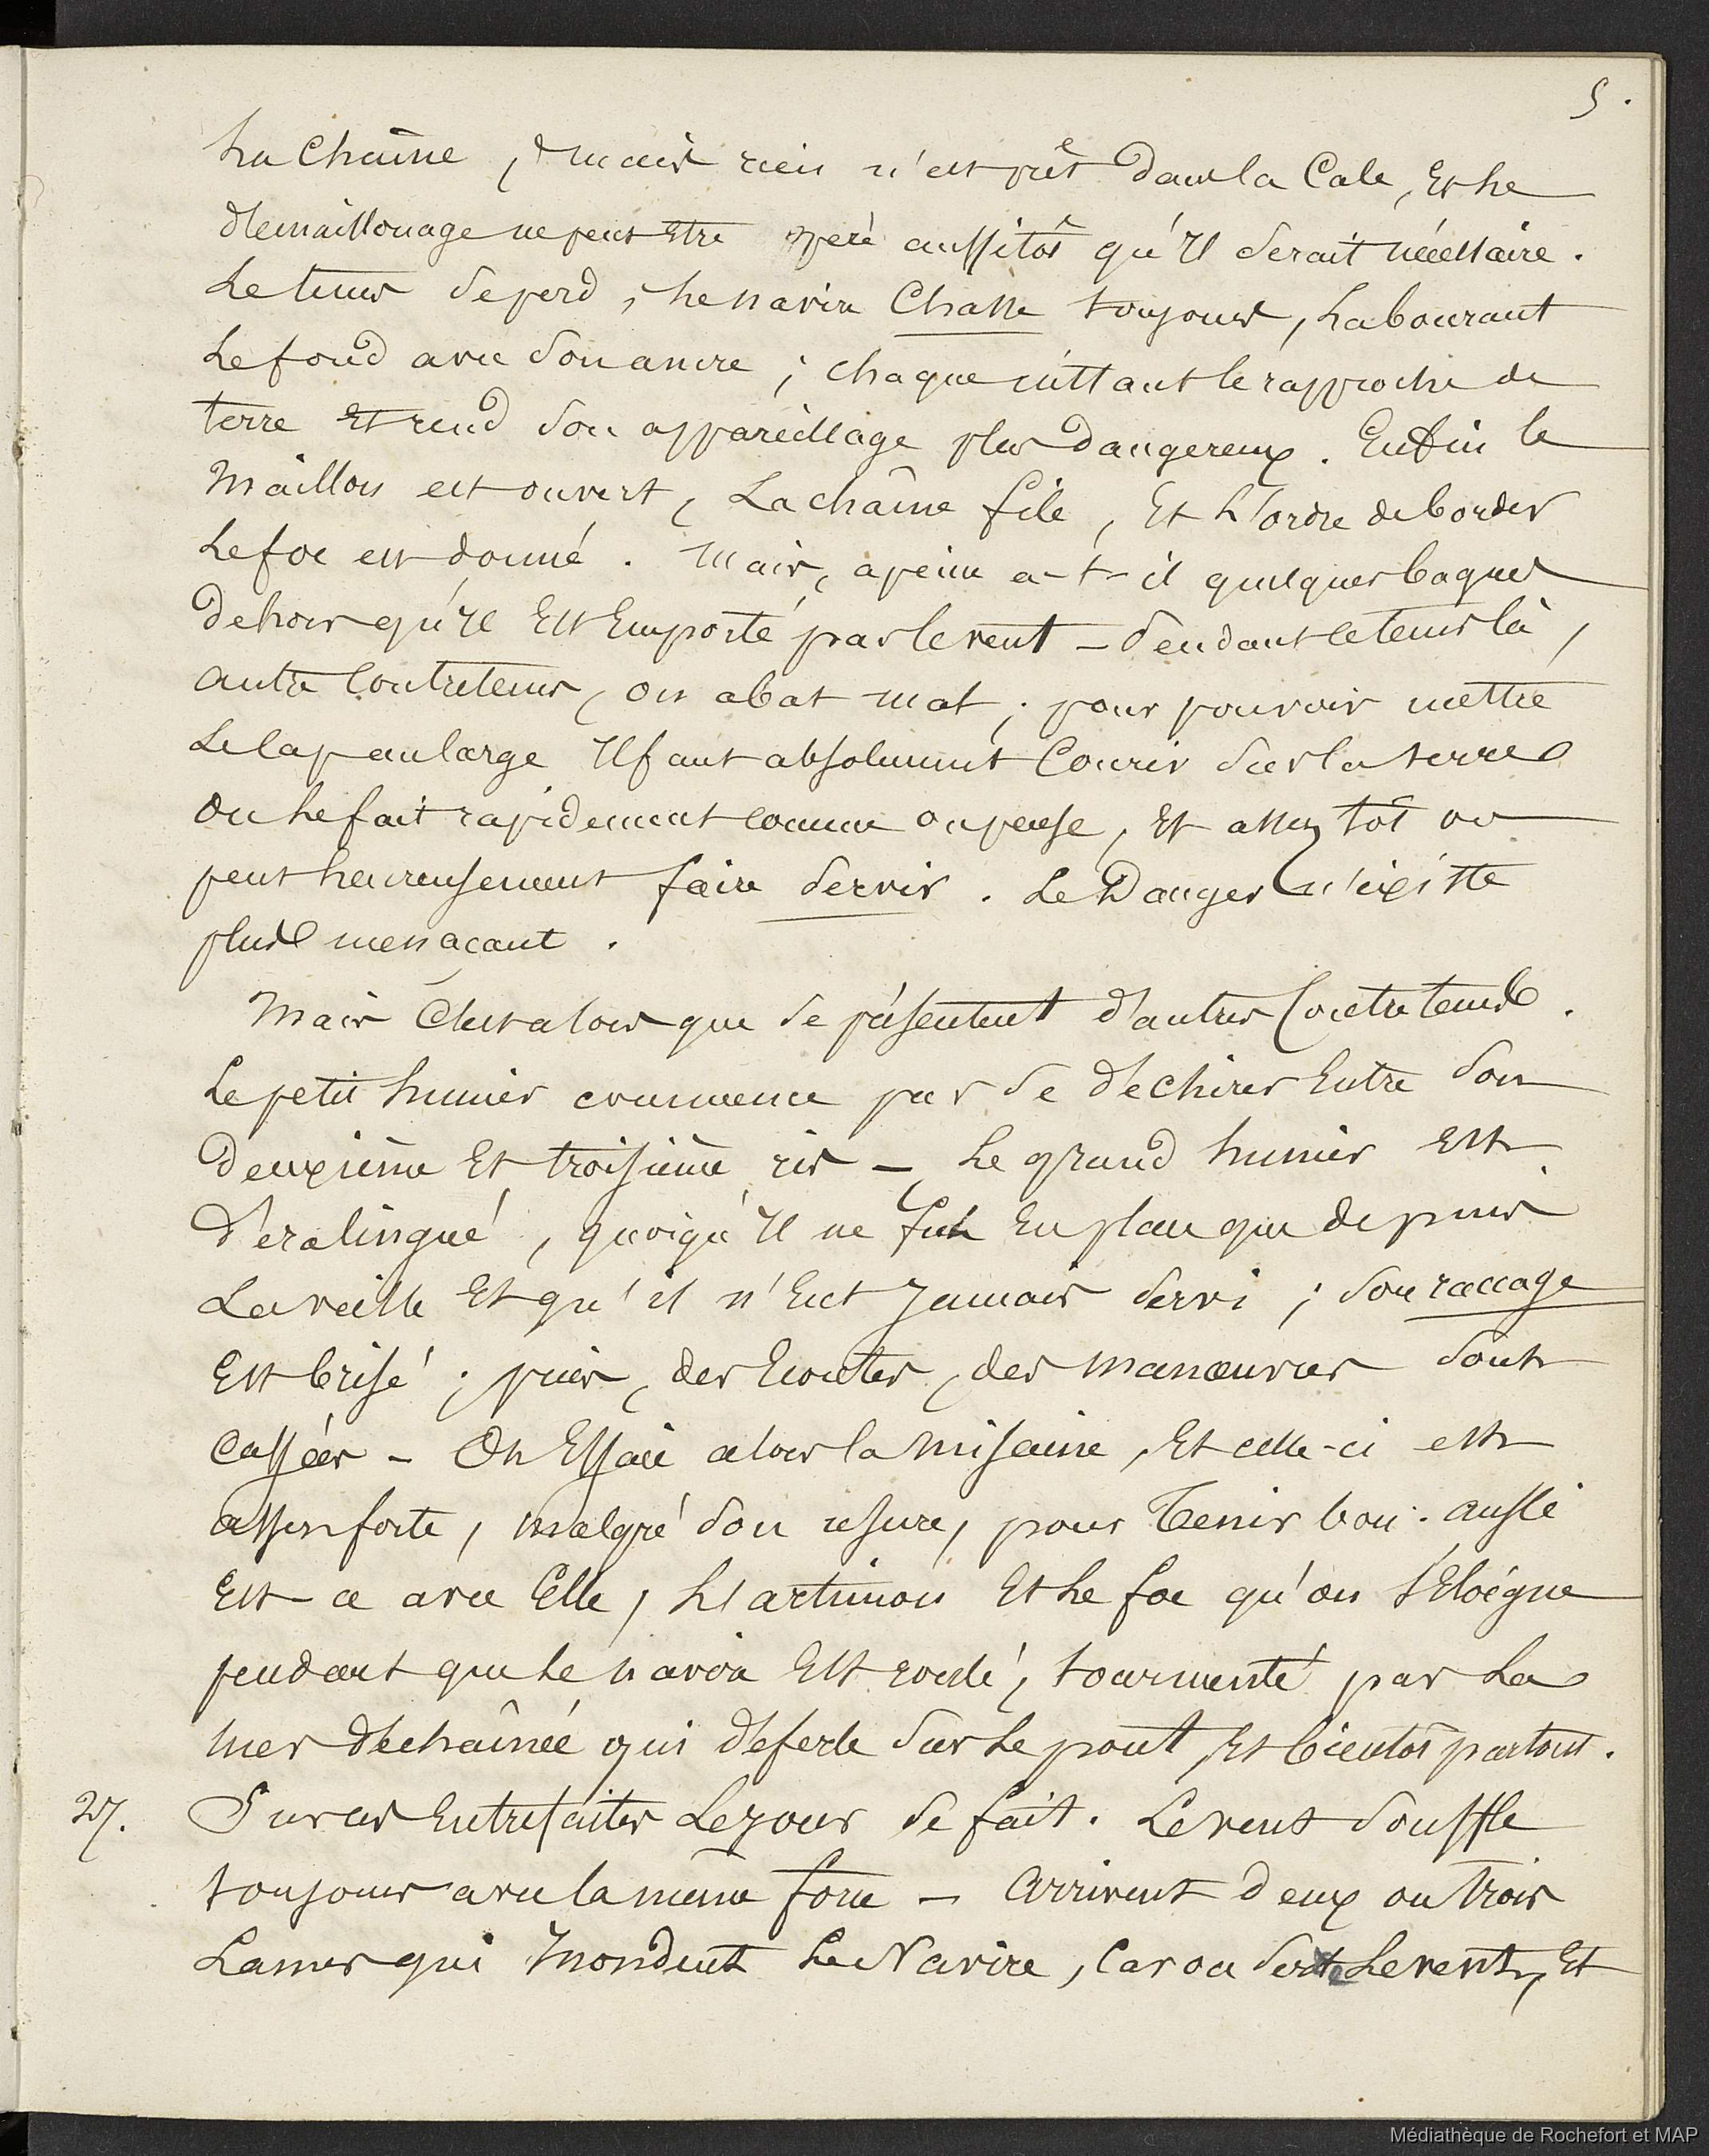 5.
La Chaîne, mais rien n'est prêt dans la Cale, et le
démaillonage ne peut être opéré aussitôt qu'il serait nécessaire.
Le tems se perd, le navire Chasse toujours, labourant
le fond avec son ancre ; chaque instant le rapproche de
terre et rend son appareillage plus dangereux. Enfin le
Maillon est ouvert, La chaîne file, et l'ordre de border
le foc est donné. Mais, apeine a-t-il quelques bagues
dehors qu'il est emporté par le vent - Pendant ce tems là,
autre contretems, on abat mal ; pour pouvoir mettre
le cap au large il faut absolument Courir sur la terre
on le fait rapidement comme on pense, et assez tôt on
peut heureusement faire servir. Le Danger n'existe
plus menaçant.
Mais C'est alors que se présentent d'autres Contretems.
Le petit hunier commence par se déchirer entre son
deuxième et troisième ris - Le grand hunier est
déralingué, quoiqu'il ne fut en place que depuis
La veille et qu'il n'eut jamais servi ; son raccage
est brisé ; puis, des Ecoutes, des manœuvres sont
Cassées - On Essaie alors la Misaine, Et celle-ci est
assez forte, malgré son usure, pour Tenir bon. aussi
est-ce avec Elle, L'artimon et le foc qu'on s'Eloigne
pendant que le navire Est roulé, tourmenté par La
mer déchaînée qui déferle sur le pont, Et bientôt partout.
27. Sur ces Entrefaites Le jour se fait. Le vent souffle
toujours avec la même force - Arrivent deux ou trois
Lames qui Inondent Le Navire, Car on serre Le vent, Et
Médiathèque de Rochefort et MAP